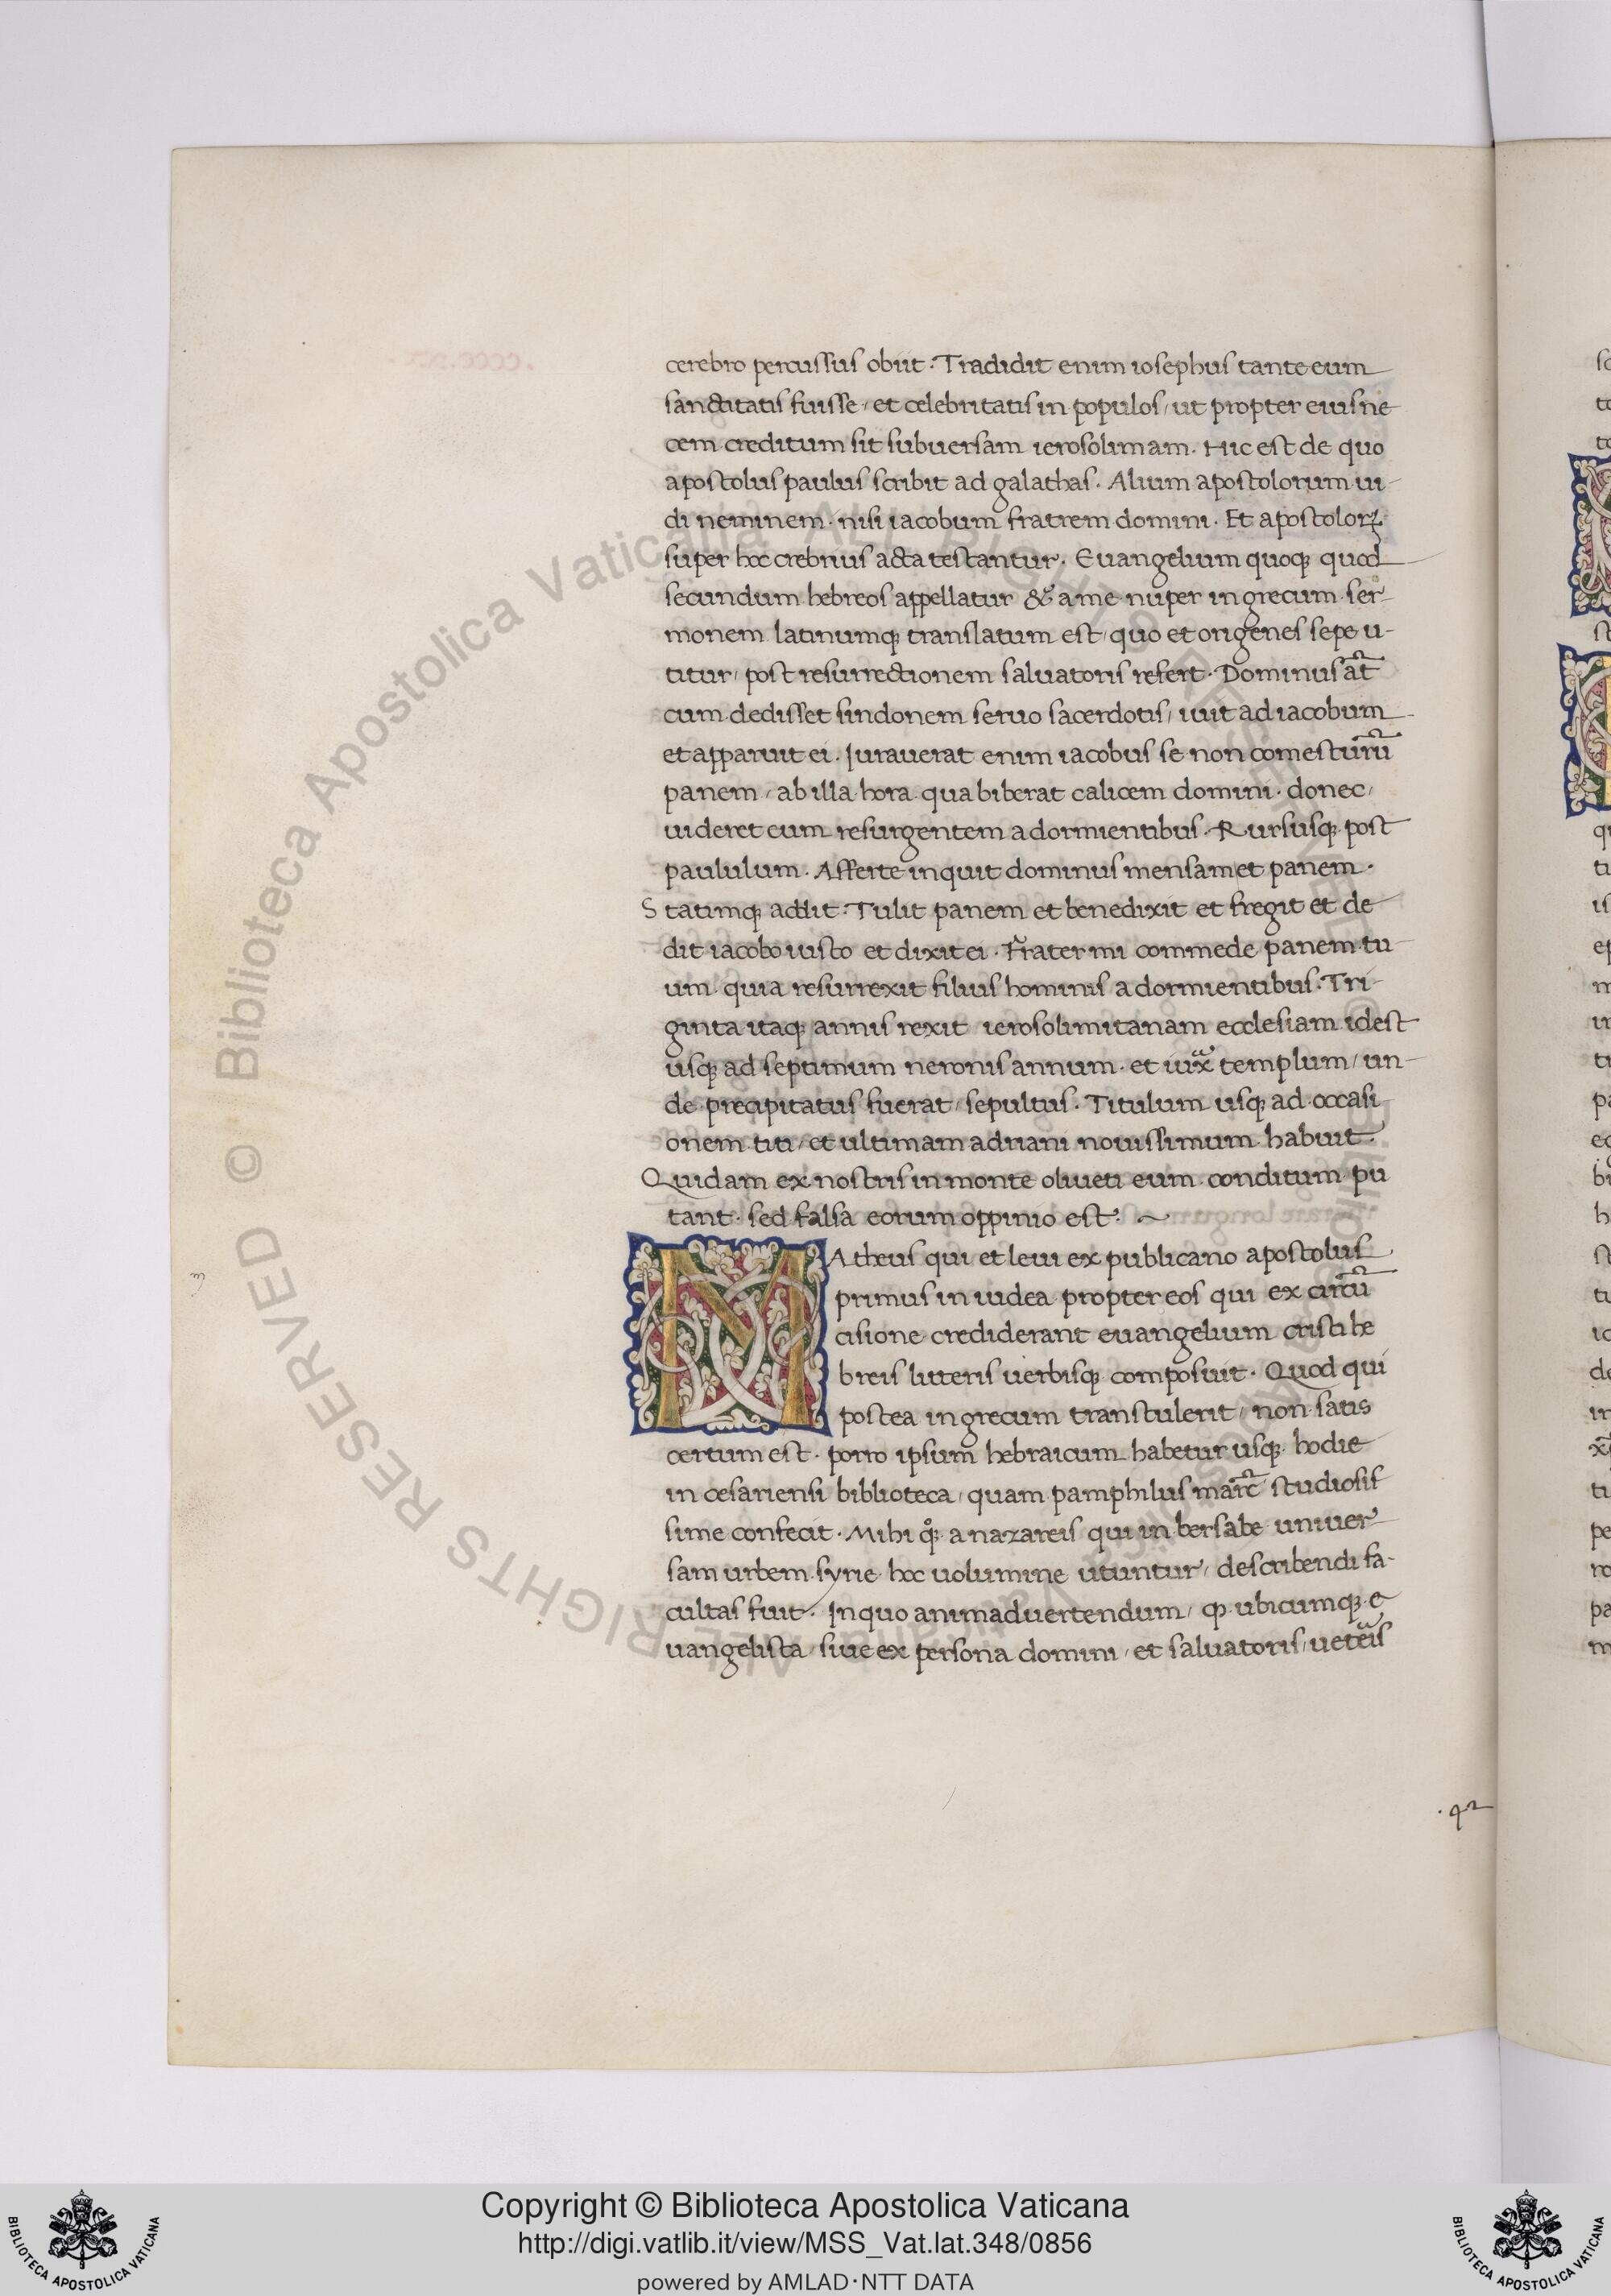 cerebro percussus obiit. Tradidit enim iosephus tante eum
sanctitatis fuisse, et celebritatis in populos, ut propter eius ne
cem creditum sit subuersam ierosolimam. Hic est de quo
apostolus paulus scribit ad galathas. Alium apostolorum ui-
di neminem. nisi iacobum fratrem domini. Et apostolorꝝ
super hoc crebrius acta testantur. Euangelium quoqꝫ quod
secundum hebreos appellatur & a me nuper in grecum ser-
monem latinumqꝫ translatum est, quo et origenes sepe u-
titur, post resurrectionem saluatoris refert. Dominus at̃
cum dedisset sindonem seruo sacerdotis, iuit ad iacobum
et apparuit ei. Jurauerat enim iacobus se non comesturũ
panem, ab illa hora qua biberat calicem domini. donec,
uideret eum resurgentem a dormientibus. Rursusqꝫ post
paululum. Afferte inquit dominus mensam et panem.
Statimqꝫ addit. Tulit panem et benedixit et fregit et de
dit iacobo iusto et dixit ei. Frater mi commede panem tu-
um. quia resurrexit filius hominis a dormientibus. Tri-
ginta itaqꝫ annis rexit ierosolimitanam ecclesiam idest
usqꝫ ad septimum neronis annum. et iuxᷓ templum, un-
de precipitatus fuerat, sepultus. Titulum usqꝫ ad occasi
onem titi, et ultimam adriani nouissimum habuit.
Quidam ex nostris in monte oliueti eum conditum pu
tant. sed falsa eorum oppinio est. ~
MAtheus qui et leui ex publicano apostolus
primus in iudea propter eos qui ex circũ
cisione crediderant euangelium cristi he
breis litteris uerbisqꝫ composuit. Quod qui
postea in grecum transtulerit, non satis
certum est. porro ipsum hebraicum habetur usqꝫ hodie
in cesariensi biblioteca, quam pamphilus marc̃ studiosis
sime confecit. Mihi qͦꝫ a nazareis qui in bersabe uniuer
sam urbem syrie hoc uolumine utuntur, describendi fa-
cultas fuit. In quo animaduertendum, ꝙ ubicumqꝫ e
uangelista, siue ex persona domini, et saluatoris, ueteᷓis
.92
Copyright © Biblioteca Apostolica Vaticana
http://digi.vatlib.it/view/MSS_Vat.lat.348/0856
powered by AMLAD·NTT DATA
BIBLIOTECA APOSTOLICA VATICANA
BIBLIOTECA APOSTOLICA VATICANA
© Biblioteca Apostolica Vaticana ALL RIGHTS RESERVED